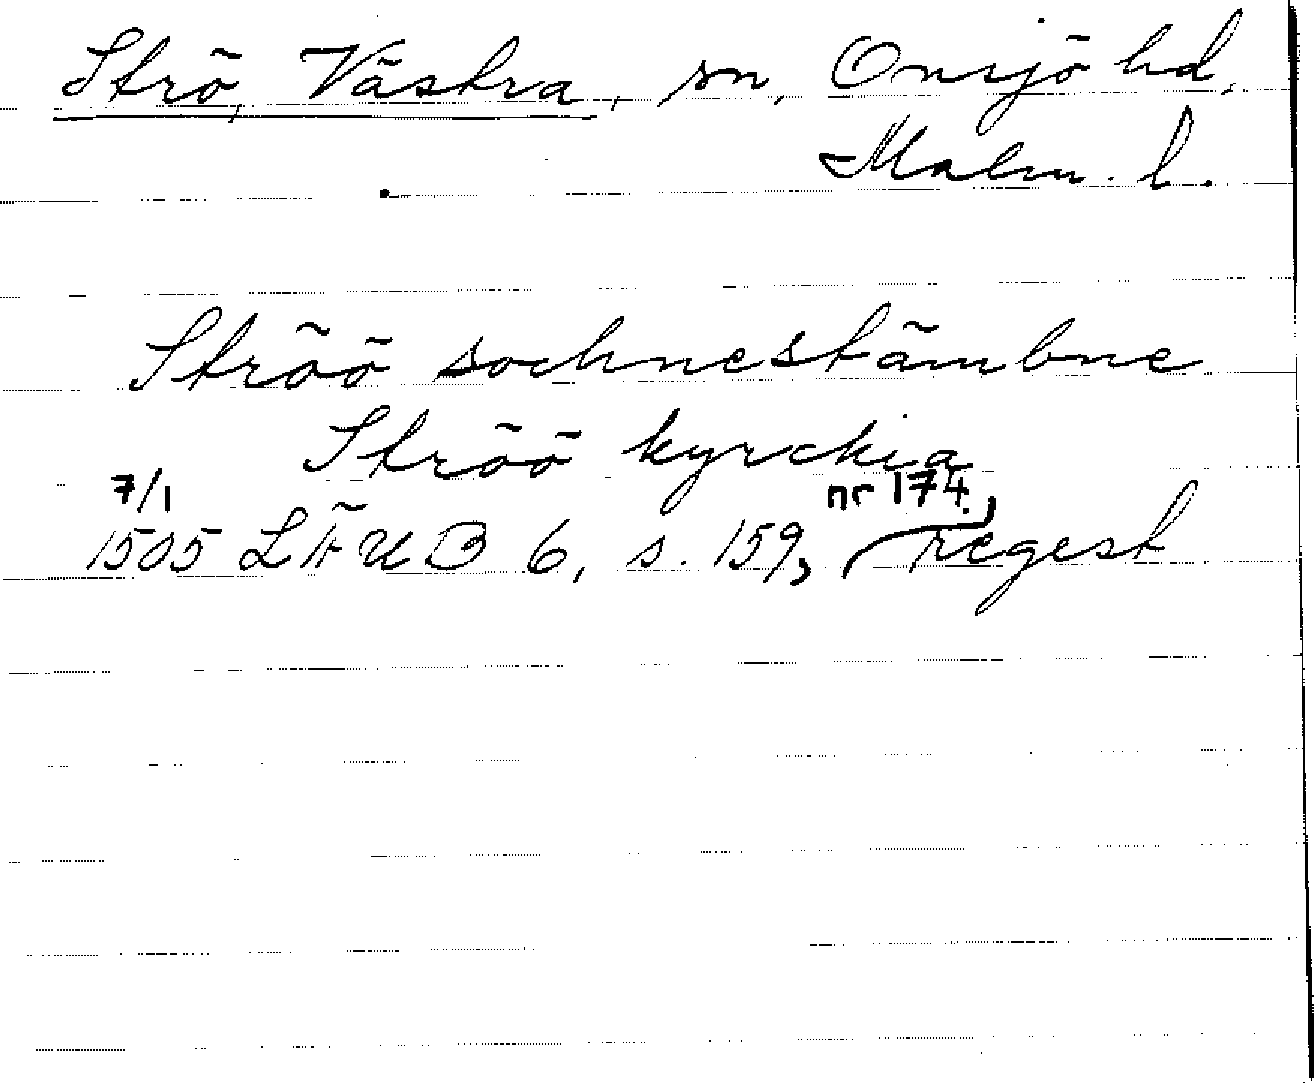 Strö, Västra, sn, Onsjö hd,
Malm. l.
Ströö sochnestämbne
Ströö kyrckia
7/1 nr 174,
1505 LÄUB 6, s. 159, regest